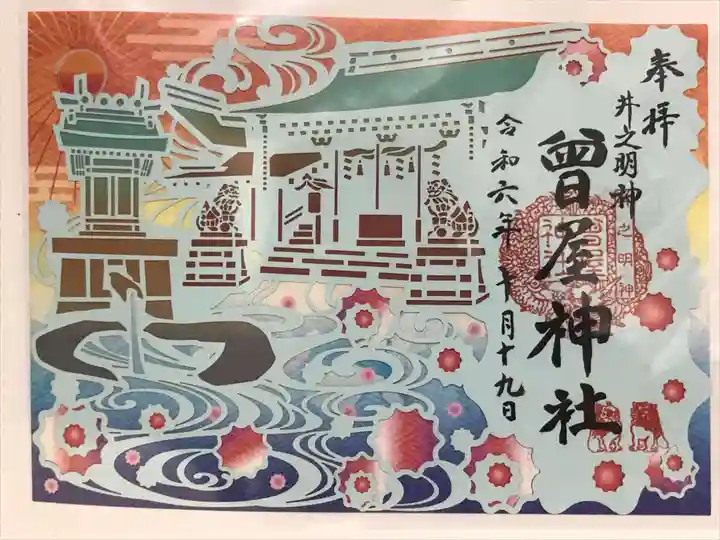 奉拝
井之明神
曽屋神社
令和六年 十月十九日
之明神